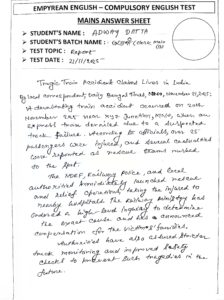 EMPYREAN ENGLISH – COMPULSORY ENGLISH TEST
MAINS ANSWER SHEET
STUDENT'S NAME : ADWAY DATTA
STUDENT'S BATCH NAME : (Core, main
TEST TOPIC : Report
TEST DATE : 21/11/2025
Tragic Train Accident Claims Lives in India
By local correspondent, Daily Bengal Times, November 21, 2025:
A devastating train accident occurred on 20th
November 2025 near XYZ Junction, when an
express train derailed due to a suspected
track failure. According to officials over 25
passengers were injured, and several casualties
were reported as rescue teams rushed
to the spot.
The NDRF, Railway Police, and local
authorities immediately launched rescue
and relief operations taking the injured to
nearby hospitals. The Railway Ministry has
ordered a high-level inquiry to determine
the exact cause and has announced
compensation for the victims' families.
Authorities have also assured stricter
track monitoring and improved safety
checks to prevent such tragedies in the
future.